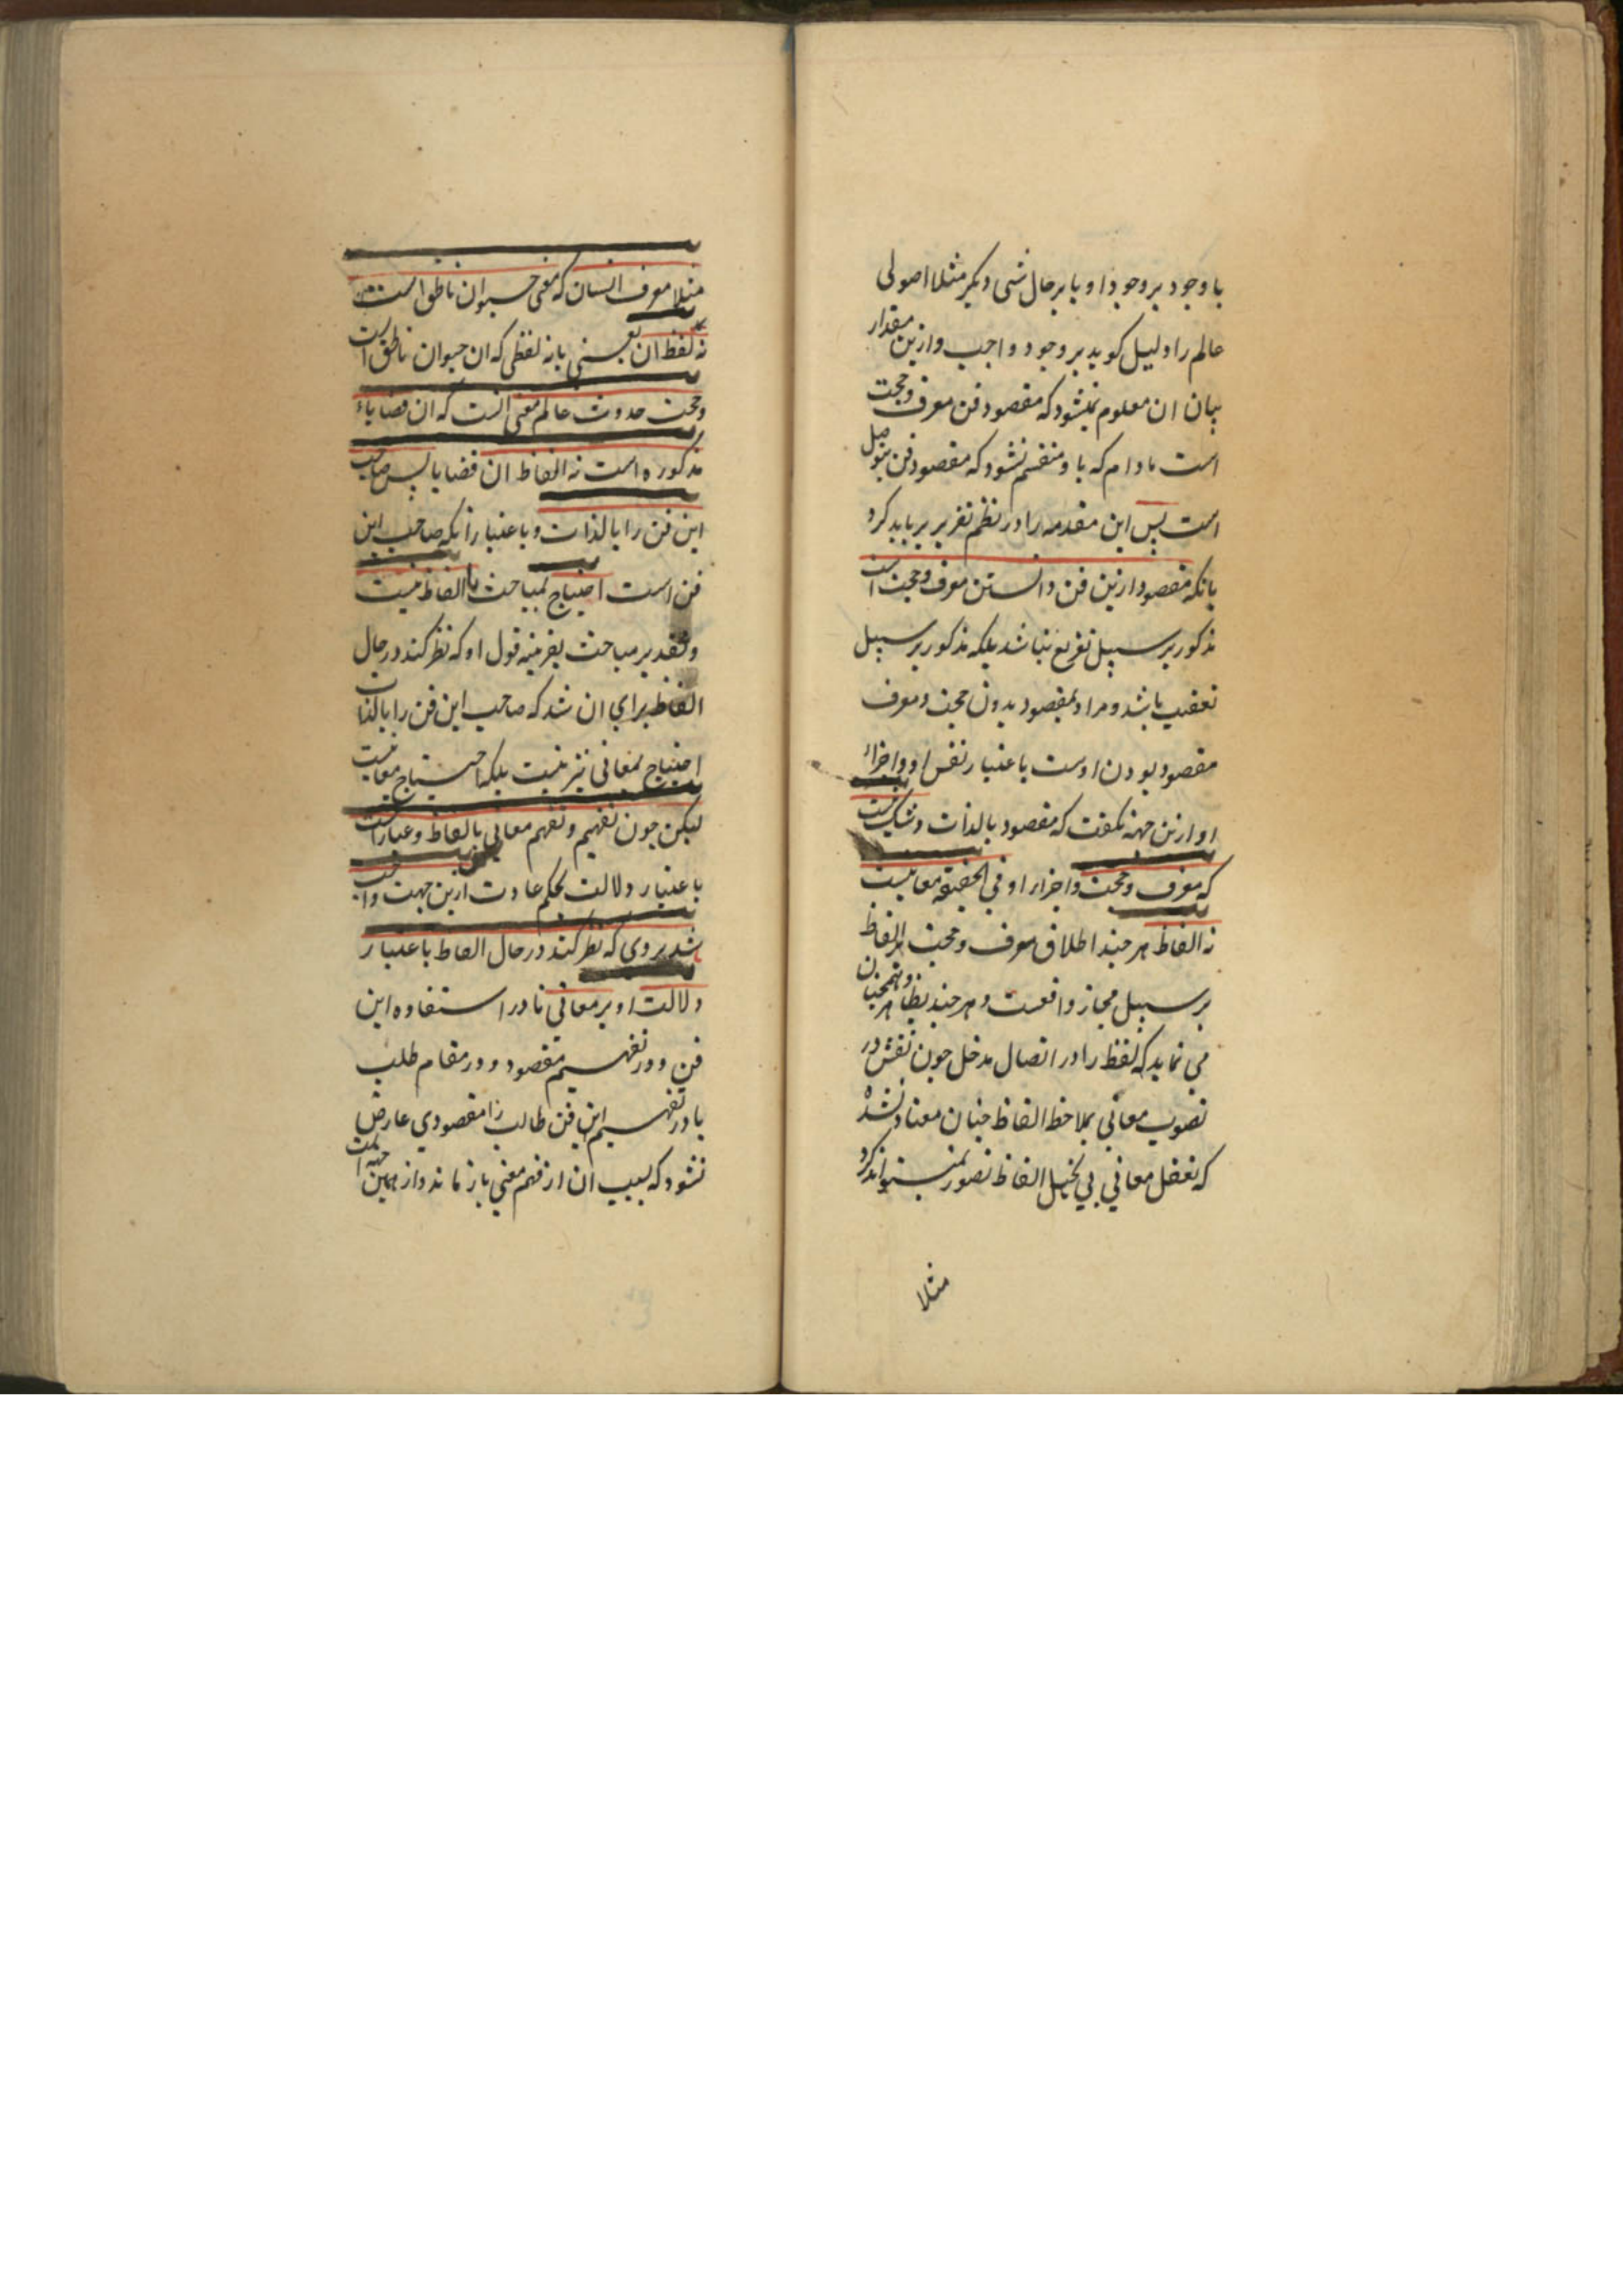 با وجود بر وجود او یا بر حال شی دیکر مثلا اصولی
عالم را دلیل کوید بر وجود واجب و ازین مقدار
بیان ان معلوم نمیشود که مقصود فن معرف و حجت
است مادام که با و منضم نشود که مقصود فن موصل
است پس این مقدمه را در نظم تقریر بر باید کرد
بانکه مقصود ازین فن دانستن معرف و حجت است
مذکور بر سبیل تفریع نباشد بلکه مذکور بر سبیل
تعقیب باشد و مراد بمقصود بودن حجت و معرف
مقصود بودن اوست باعتبار نفس او و اجزاء
او ازین جهة نکفت که مقصود بالذات و شک نیست
که معرف و حجت و اجزاء او فی الحقیقة معانیست
نه الفاظ هر چند اطلاق معرف و حجت بر الفاظ
بر سبیل مجاز واقعست و هر چند بظاهر همچنان
می نماید که لفظ را در اتصال مدخل چون نفس در
تصویب معانی بملاحظ الفاظ چنان معتاد شده
که تعقل معانی بی تخیل الفاظ تصور نمیتواند کرد
مثلا
مثلا معرف انسان که معنی حیوان ناطق است
نه لفظ ان یعنی بانه لفظی که ان حیوان ناطق است
و حجت حدوث عالم معنی انست که ان قضایاء
مذکوره است نه الفاظ ان قضایا پس صاحب
این فن را بالذات و باعتبار آنکه صاحب این
فن است احتیاج بمباحث الفاظ نیست
و تقدیر مباحث بقرینه قول او که نظر کند در حال
الفاظ برای ان شد که صاحب این فن را بالذات
احتیاج بمعانی نیز نیست بلکه احتیاج معانیست
لیکن چون تفهیم و تفهم معانی بالفاظ و عبارات
باعتبار دلالت بحکم عادت ازین جهت واجب
شد بر وی که نظر کند در حال الفاظ باعتبار
دلالت او بر معانی تا در استفاده این
فن و در تفهیم مقصود و در مقام طلب
یا در تفهیم این فن طالب را مقصودی عارض
نشود که بسبب ان از فهم معنی باز ماند و از همین جهة است